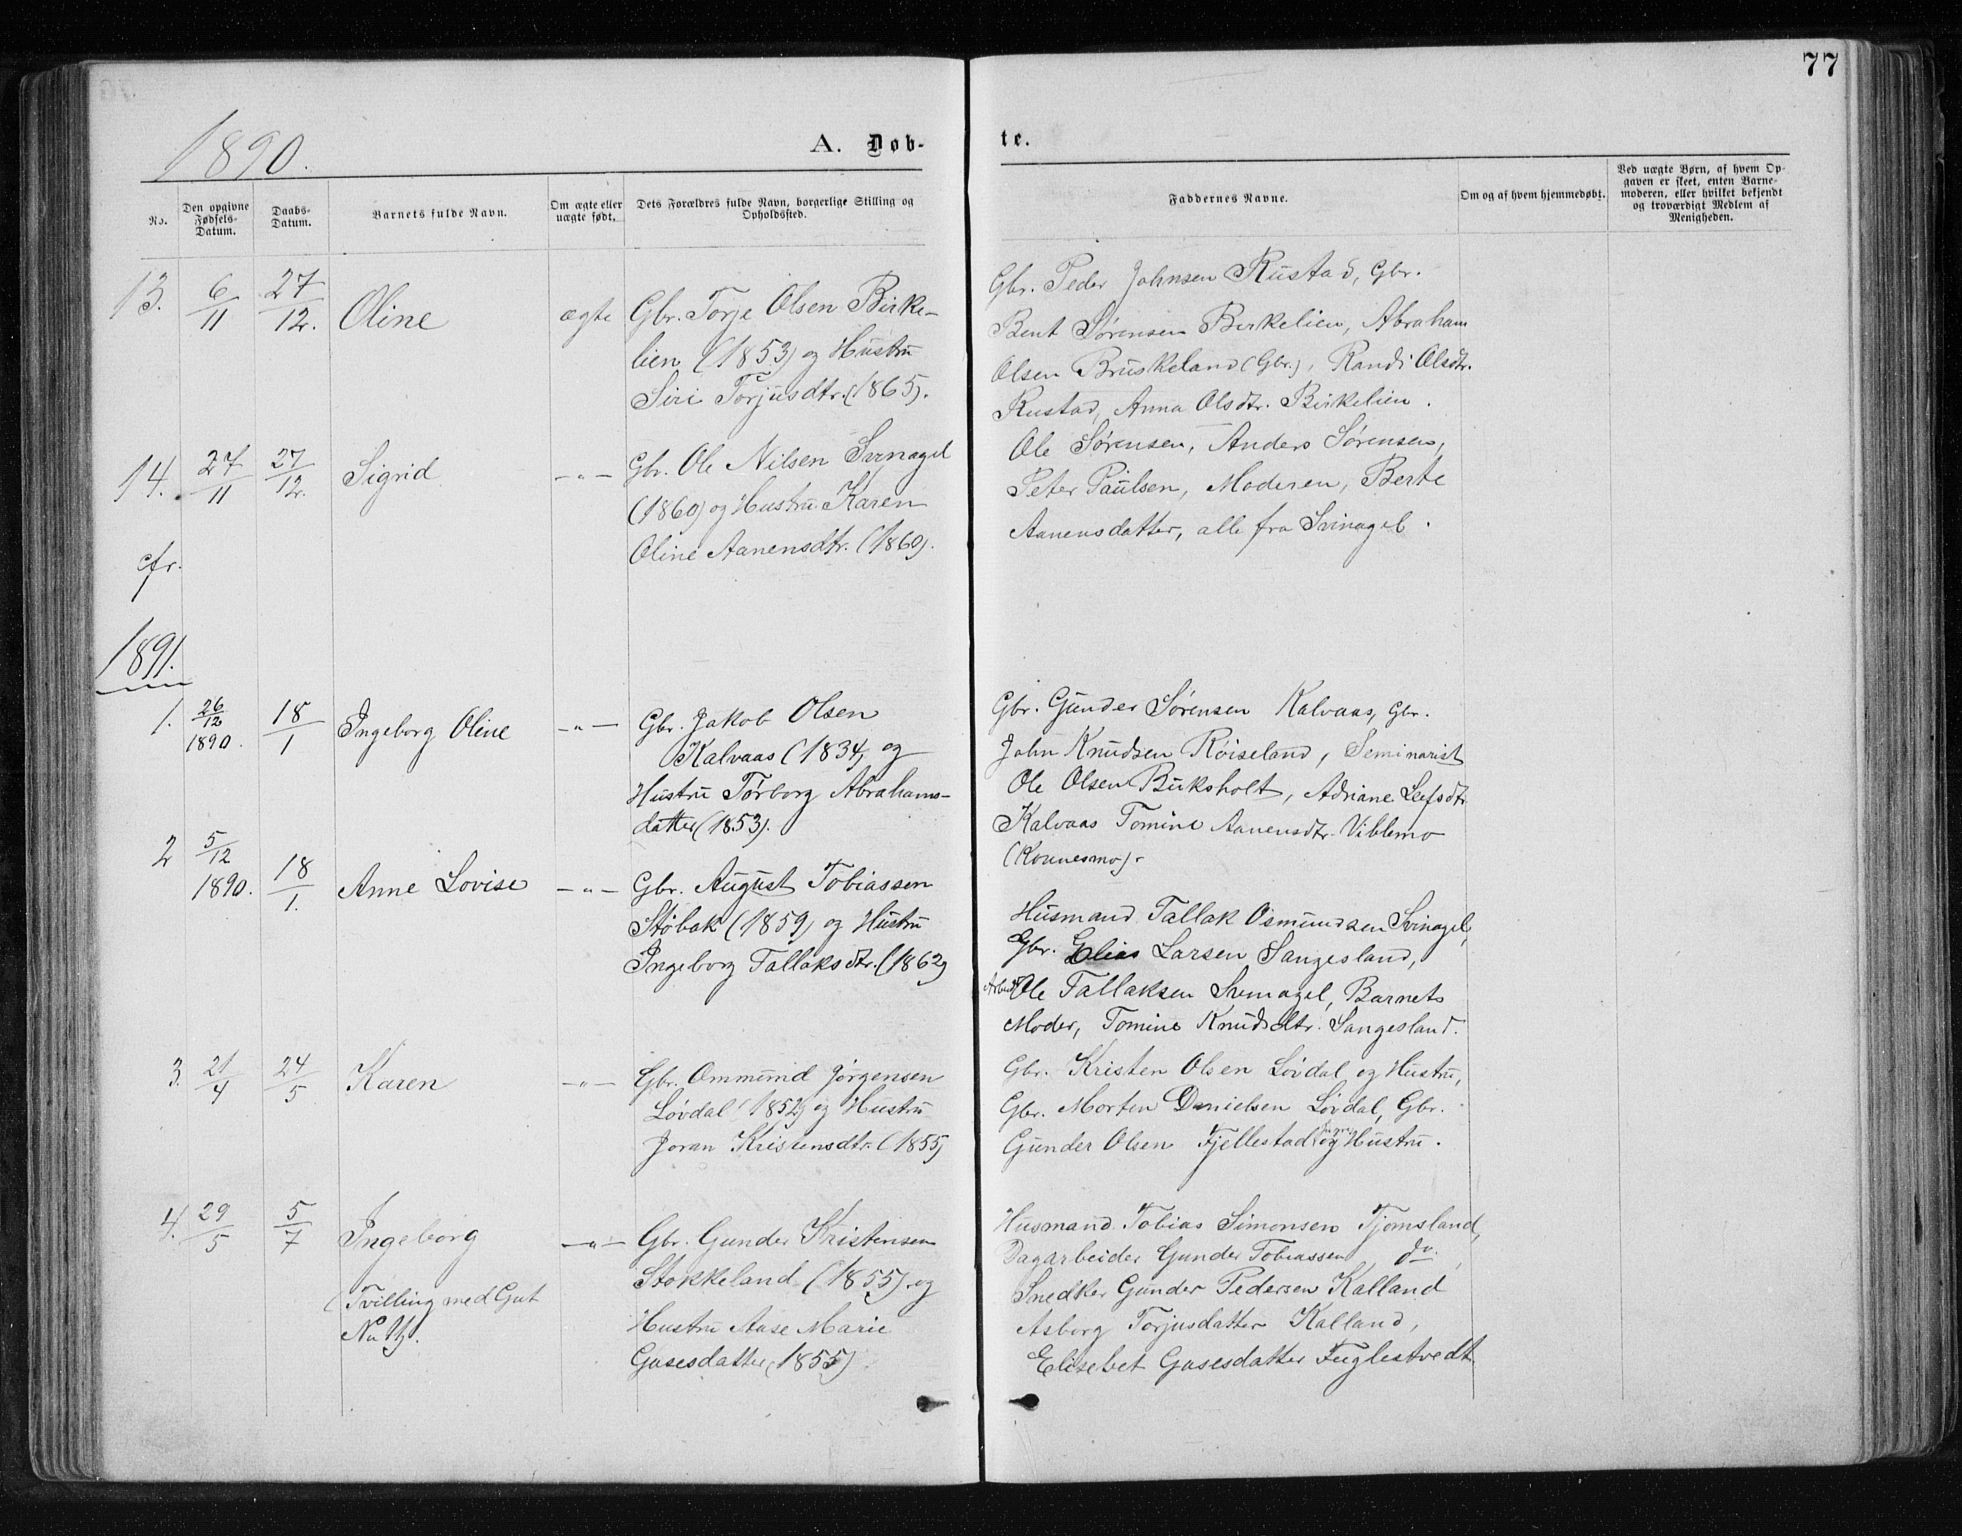 77
1890.
A. Døb-
te.
No.
Den opgivne Fødsels-Datum.
Daabs-Datum.
Barnets fulde Navn.
Om ægte eller uægte født.
Dets Forældres fulde Navn, borgerlige Stilling og Opholdssted.
Faddernes Navne.
Om og af hvem hjemmedøbt.
Ved uægte Børn, af hvem Op-
gaven er skeet, enten Barne-
moderen, eller hvilket bekjendt
og troværdigt Medlem af
Menigheden.
13. 6/11 27/12. Oline ægte Gbr. Torje Olsen Birke-
lien (1853) og Hustru
Siri Torjusdtr. (1865).
Gbr. Peder Johnsen Rustad, Gbr.
Bent Sørensen Birkelien, Abraham
Olsen Bruskeland (Gbr.), Randi Olsdtr.
Rustad, Anna Olsdtr. Birkelien.
14. 27/11 27/12. Sigrid —"— Gbr. Ole Nilsen Svinagel
(1860) og Hustru Karen
Oline Aanensdtr. (1860).
Ole Sørensen, Anders Sørensen,
Peter Paulsen, Moderen, Berte
Aanensdatter, alle fra Svinagel.
cfr.
1891.
1. 26/12 1890. 18/1 Ingeborg Oline —"— Gbr. Jakob Olsen
Kalvaas (1834) og
Hustru Torborg Abrahams-
datter (1853).
Gbr. Gunder Sørensen Kalvaas, Gbr.
John Knudsen Røiseland, Seminarist
Ole Olsen Birksholt, Adriane Leifsdtr.
Kalvaas Tomine Aanensdtr. Viblemo
(Konnesmo).
2 5/12 1890. 18/1. Anne Lovise —"— Gbr. August Tobiassen
Støbak (1859) og Hustru
Ingeborg Tallaksdtr. (1862)
Husmand Tallak Osmundsen Svinagel,
Gbr. Elias Larsen Sangesland,
Ole Tallaksen Svinagel, Barnets
Moder, Tomine Knudsdtr. Sangesland.
3. 21/4 24/5 Karen —"— Gbr. Ommund Jørgensen
Løvdal (1852) og Hustru
Joran Kristensdtr. (1855)
Gbr. Kristen Olsen Løvdal og Hustru,
Gbr. Morten Danielsen Løvdal, Gbr.
Gunder Olsen Fjellestad og Hustru.
4. 29/5 5/7 Ingeborg —"— Gbr. Gunder Kristensen
(Tvilling med Gut
No 4).
Stokkeland (1855) og
Hustru Aase Marie
Gasesdatter (1855)
Husmand Tobias Simonsen Tjomsland,
Dagarbeider Gunder Tobiassen do.,
Snedker Gunder Pedersen Kalland
Asborg Torjusdatter Kalland,
Elisebet Gasesdatter Fuglestvedt